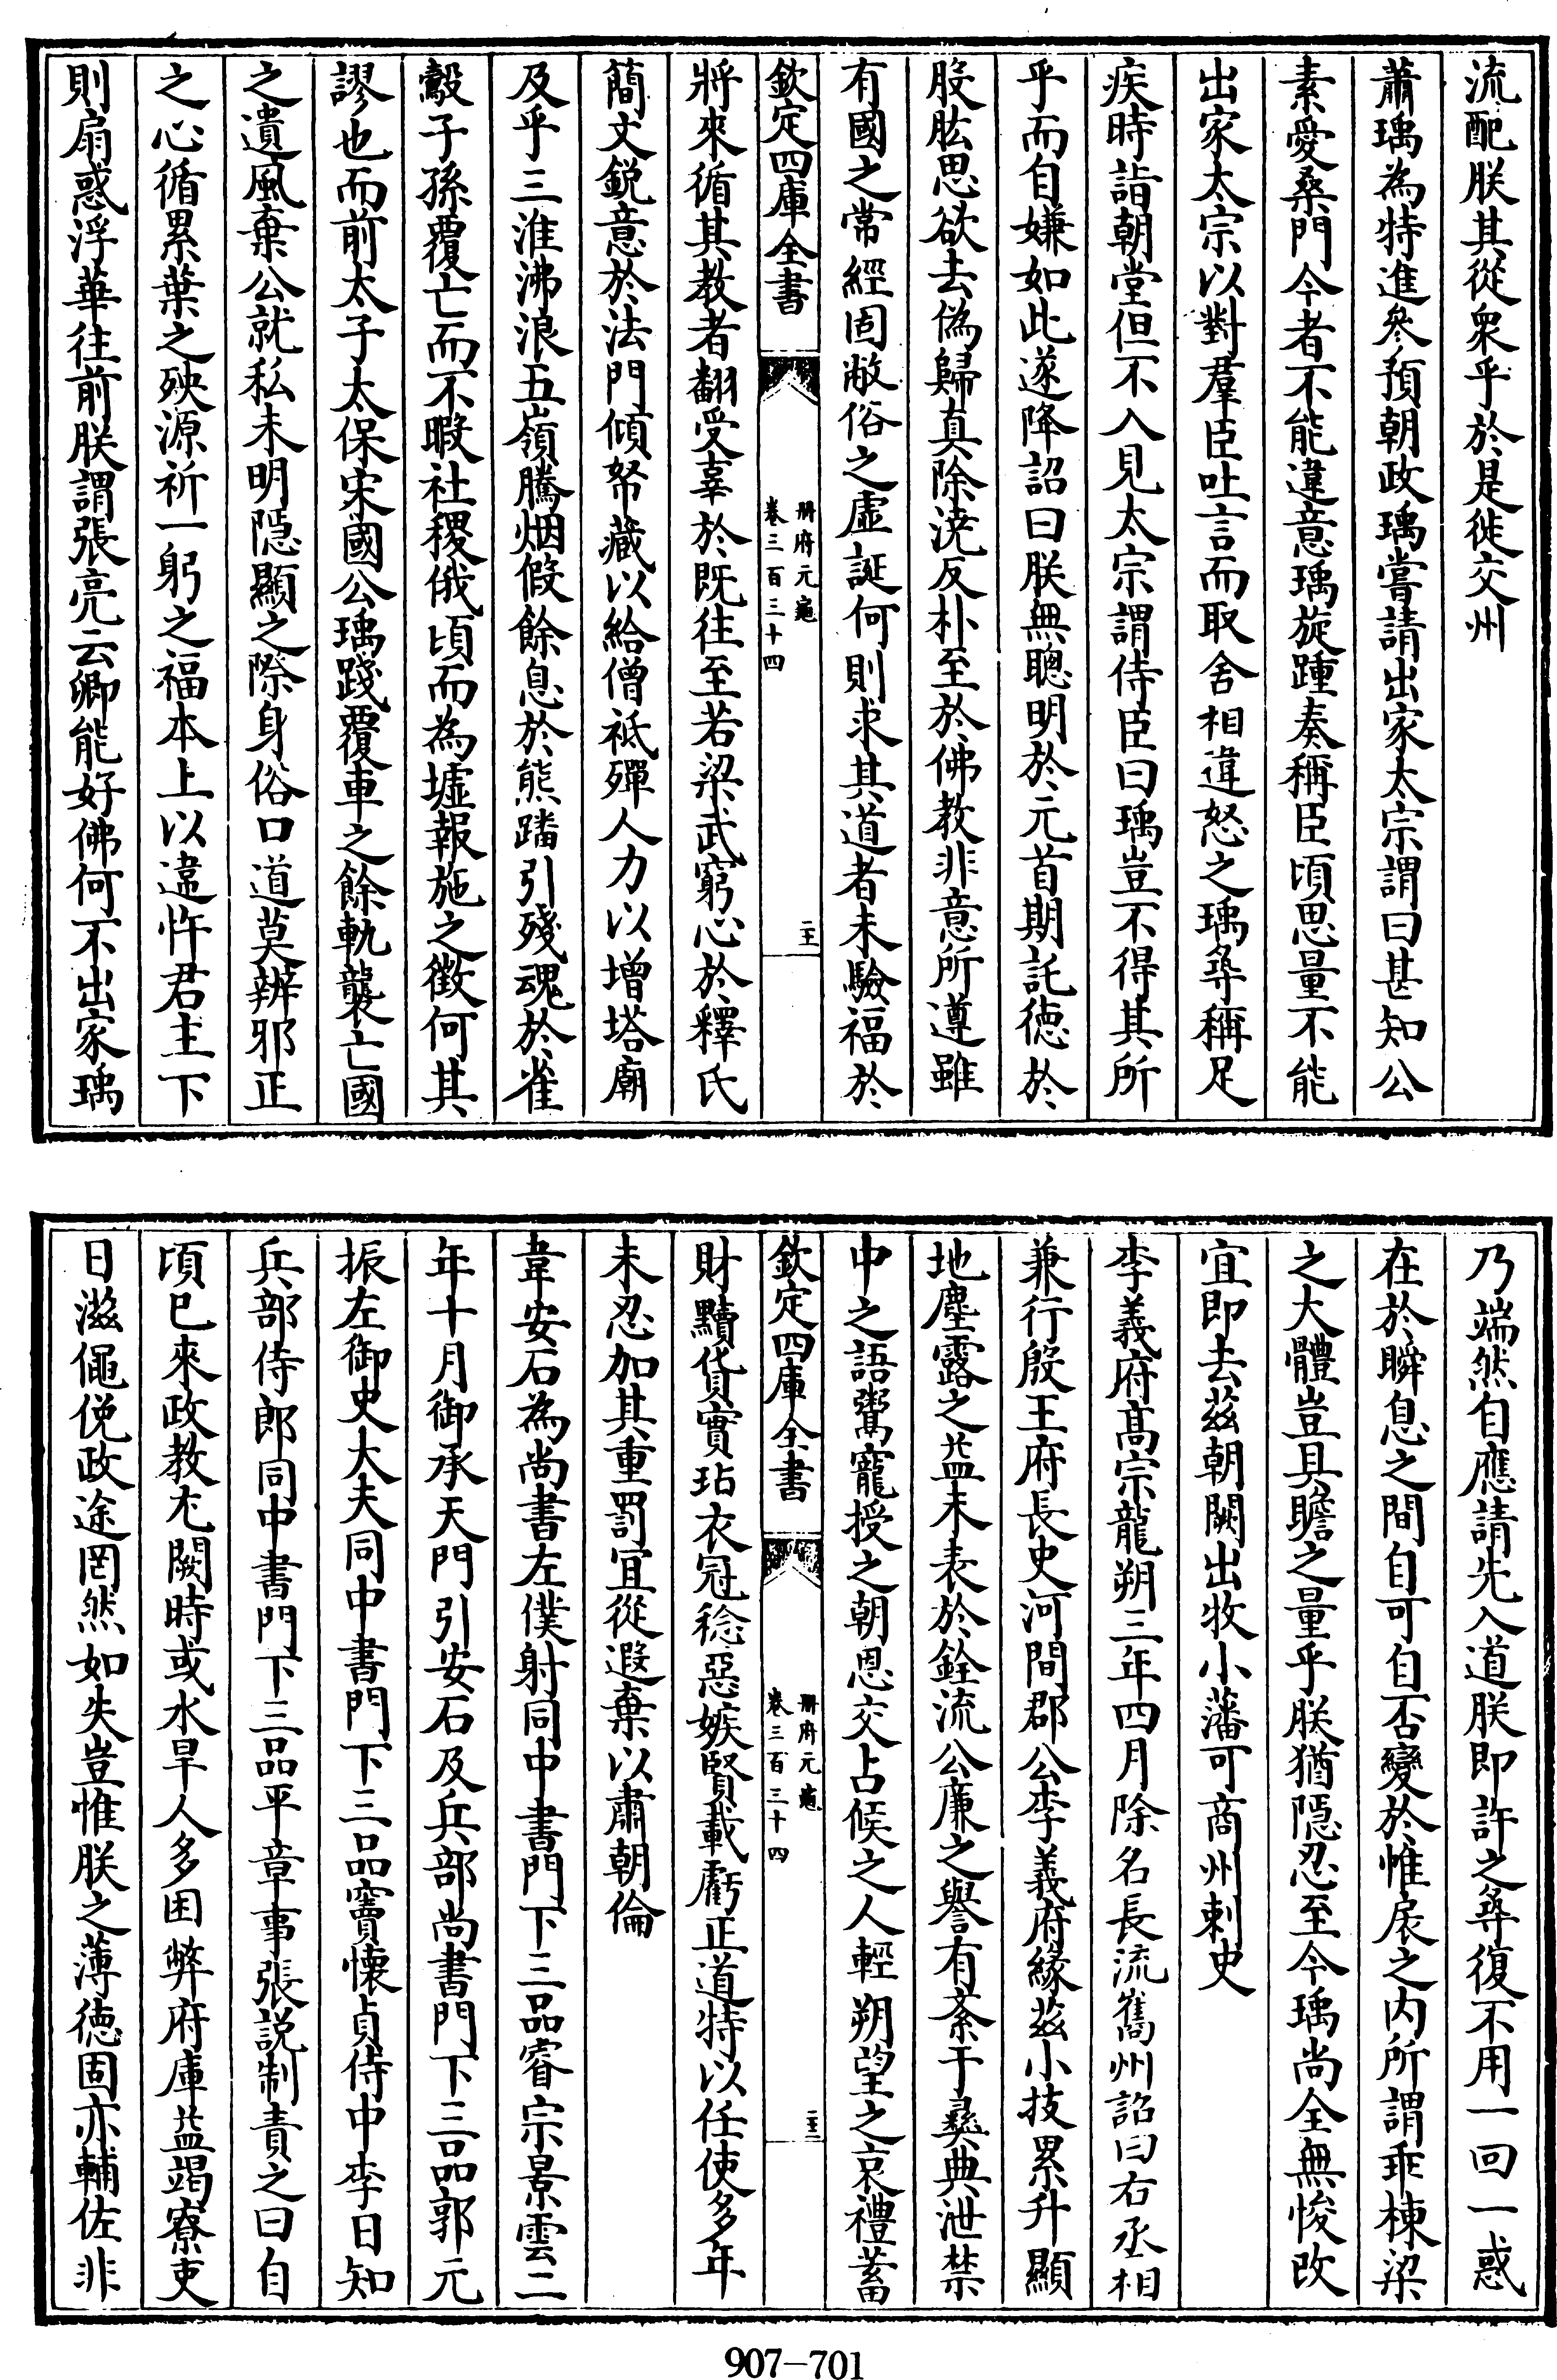 流配朕其從衆乎於是徙交州
蕭瑀為特進參預朝政瑀嘗請出家太宗謂曰甚知公
素愛桑門今者不能違意瑀旋踵奏稱臣頃思量不能
出家太宗以對羣臣吐言而取舍相違怒之瑀尋稱足
疾時詣朝堂但不入見太宗謂侍臣曰瑀豈不得其所
乎而自嫌如此遂降詔曰朕無聰明於元首期託徳於
股肱思欲去偽歸真除澆反朴至於佛教非意所遵雖
有國之常經固敝俗之虛誕何則求其道者未驗福於
欽定四庫全書
冊府元龜
卷三百三十四
二十一
將來循其教者翻受辜於既往至若梁武窮心於釋氏
簡文鋭意於法門傾帑藏以給僧祇殫人力以增塔廟
及乎三淮沸浪五嶺騰烟假餘息於熊蹯引殘魂於雀
鷇子孫覆亡而不暇社稷俄頃而為墟報施之徵何其
謬也而前太子太保宋國公瑀踐覆車之餘軌襲亡國
之遺風棄公就私未明隠顯之際身俗口道莫辨邪正
之心循累葉之殃源祈一躬之福本上以違忤君主下
則扇惑浮華往前朕謂張亮云卿能好佛何不出家瑀
乃端然自應請先入道朕即許之尋復不用一回一惑
在於瞬息之間自可自否變於惟扆之内所謂乖棟梁
之大體豈具瞻之量乎朕猶隠忍至今瑀尚全無悛改
宜即去兹朝闕出牧小藩可商州刺史
李義府髙宗龍朔三年四月除名長流巂州詔曰右丞相
兼行殷王府長史河間郡公李義府緣兹小技累升顯
地塵露之益未表於銓流公廉之譽有紊于彞典泄禁
中之語鬻寵授之朝恩交占候之人輕朔望之哀禮蓄
欽定四庫全書
冊府元龜
卷三百三十四
二十二
財黷貨實玷衣冠稔惡嫉賢載虧正道特以任使多年
未忍加其重罰宜從遐棄以肅朝倫
韋安石為尚書左僕射同中書門下三品睿宗景雲二
年十月御承天門引安石及兵部尚書門下三品郭元
振左御史大夫同中書門下三品竇懐貞侍中李日知
兵部侍郎同中書門下三品平章事張説制責之曰自
頃已來政教尤闕時或水旱人多困弊府庫益竭寮吏
日滋僶俛政途罔然如失豈惟朕之薄徳固亦輔佐非
907-701